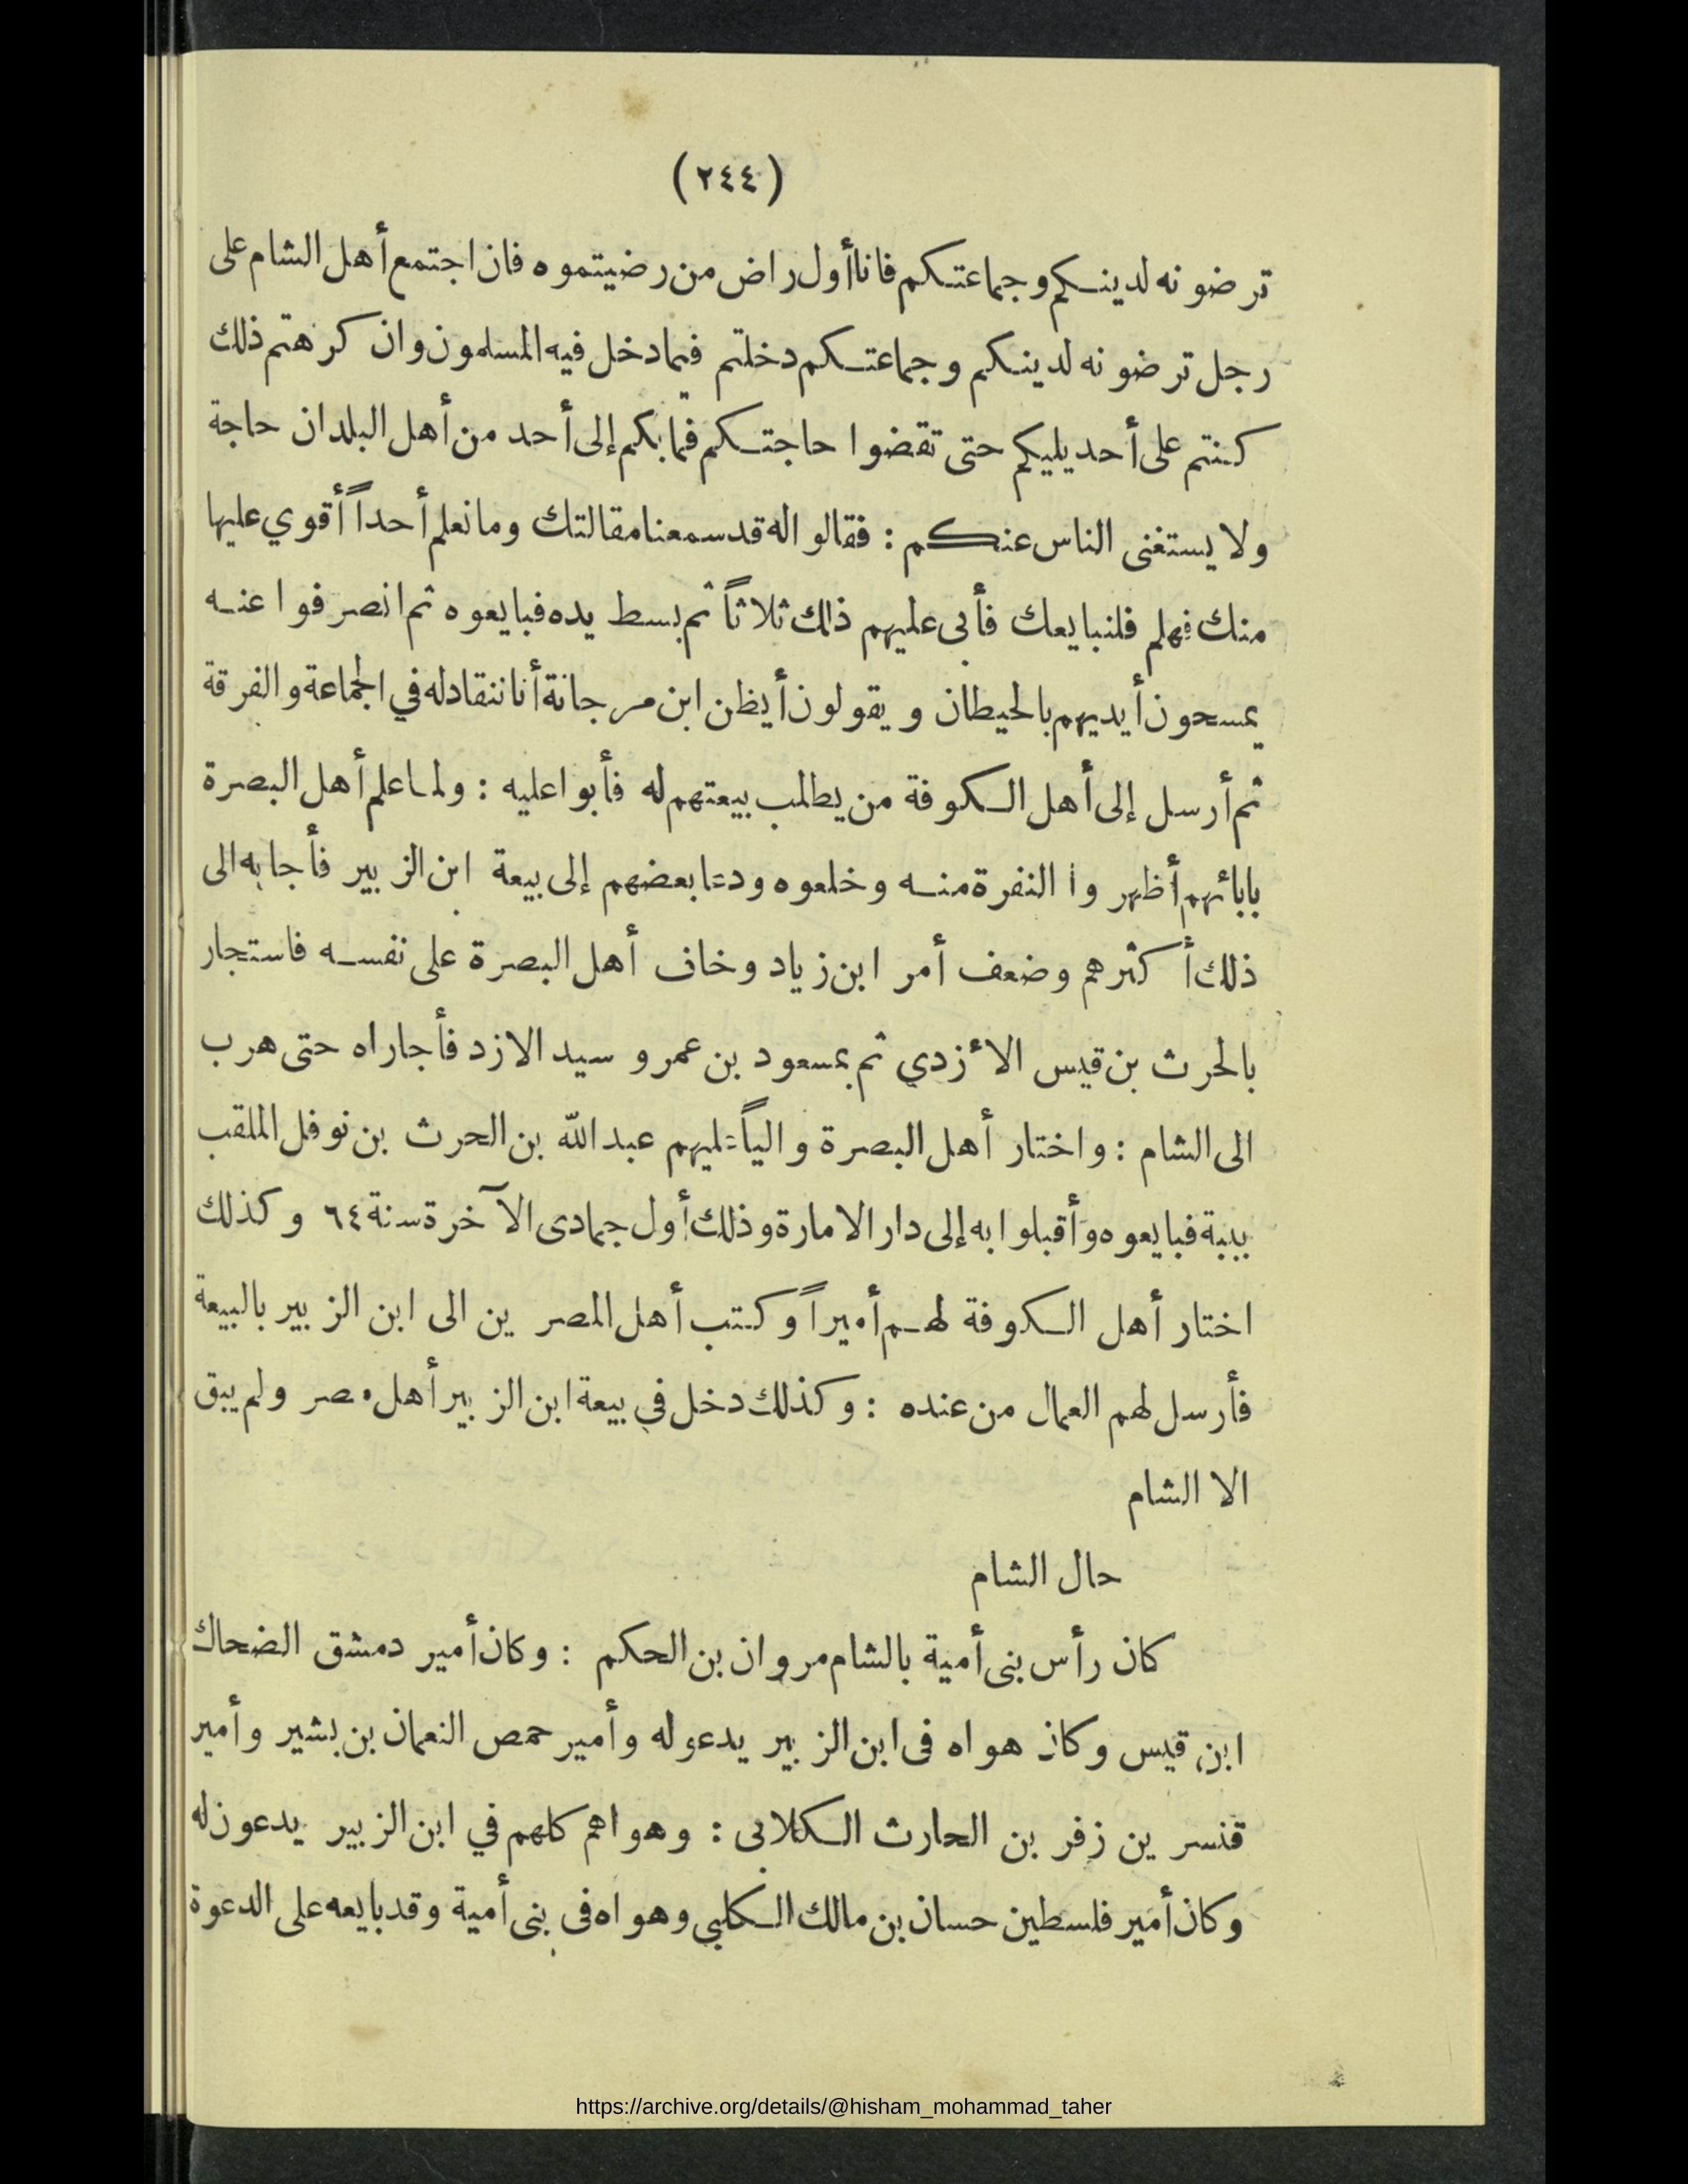 (٢٤٤)
ترضونه لدينكم وجماعتكم فانا أول راض من رضيتموه فان اجتمع أهل الشام على
رجل ترضونه لدينكم وجماعتكم دخلتم فيما دخل فيه المسلمون وان كرهتم ذلك
كنتم على أحد يليكم حتى تقضوا حاجتكم فما بكم إلى أحد من أهل البلدان حاجة
ولا يستغنى الناس عنكم : فقالوا له قد سمعنا مقالتك وما نعلم أحداً أقوي عليها
منك فهلم فلنبايعك فأبى عليهم ذلك ثلاثاً ثم بسط يده فبايعوه ثم انصرفوا عنه
يمسحون أيديهم بالحيطان ويقولون أيظن ابن مرجانة أنا ننقاد له في الجماعة والفرقة
ثم أرسل إلى أهل الكوفة من يطلب بيعتهم له فأبوا عليه : ولما علم أهل البصرة
بابائهم أظهروا النفرة منه وخلعوه ودعا بعضهم إلى بيعة ابن الزبير فأجابه الى
ذلك أكثرهم وضعف أمر ابن زياد وخاف أهل البصرة على نفسه فاستجار
بالحرث بن قيس الأزدي ثم بمسعود بن عمرو سيد الازد فأجاراه حتى هرب
الى الشام : واختار أهل البصرة والياً عليهم عبد الله بن الحرث بن نوفل الملقب
ببية فبايعوه وأقبلوا به إلى دار الامارة وذلك أول جمادى الآخرة سنة ٦٤ وكذلك
اختار أهل الكوفة لهم أميراً وكتب أهل المصرين الى ابن الزبير بالبيعة
فأرسل لهم العمال من عنده : وكذلك دخل في بيعة ابن الزبير أهل مصر ولم يبق
الا الشام
حال الشام
كان رأس بنى أمية بالشام مروان بن الحكم : وكان أمير دمشق الضحاك
ابن قيس وكان هواه فى ابن الزبير يدعو له وأمير حمص النعمان بن بشير وأمير
قنسرين زفر بن الحارث الكلابى : وهواهم كلهم في ابن الزبير يدعون له
وكان أمير فلسطين حسان بن مالك الكلبي وهواه فى بنى أمية وقد بايعه على الدعوة
https://archive.org/details/@hisham_mohammad_taher